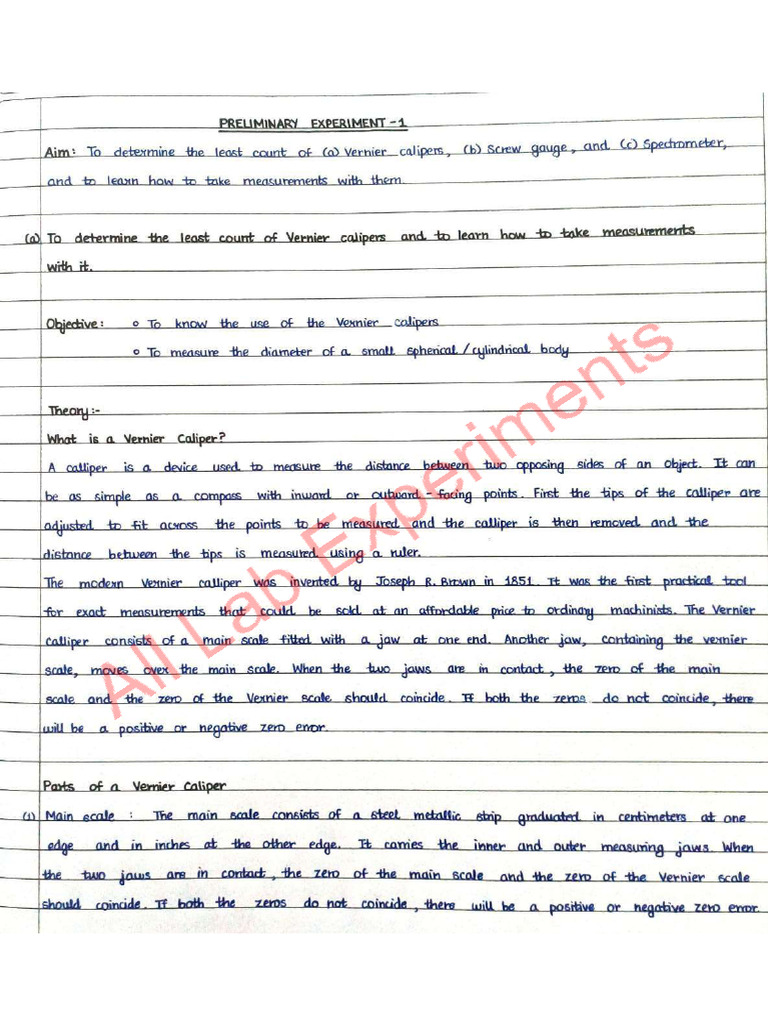 PRELIMINARY EXPERIMENT - 1
Aim: To determine the least count of (a) Vernier calipers, (b) Screw gauge, and (c) Spectrometer,
and to learn how to take measurements with them.
(a) To determine the least count of Vernier calipers and to learn how to take measurements
with it.
Objective: o To know the use of the Vernier calipers
o To measure the diameter of a small spherical / cylindrical body
Theory:-
What is a Vernier Caliper?
A calliper is a device used to measure the distance between two opposing sides of an object. It can
be as simple as a compass with inward or outward-facing points. First the tips of the calliper are
adjusted to fit across the points to be measured and the calliper is then removed and the
distance between the tips is measured using a ruler.
The modern Vernier calliper was invented by Joseph R. Brown in 1851. It was the first practical tool
for exact measurements that could be sold at an affordable price to ordinary machinists. The Vernier
calliper consists of a main scale fitted with a jaw at one end. Another jaw, containing the vernier
scale, moves over the main scale. When the two jaws are in contact, the zero of the main
scale and the zero of the Vernier scale should coincide. If both the zeros do not coincide, there
will be a positive or negative zero error.
Parts of a Vernier Caliper
(1) Main scale : The main scale consists of a steel metallic strip graduated in centimeters at one
edge and in inches at the other edge. It carries the inner and outer measuring jaws. When
the two jaws are in contact, the zero of the main scale and the zero of the Vernier scale
should coincide. If both the zeros do not coincide, there will be a positive or negative zero error.
All Lab Experiments